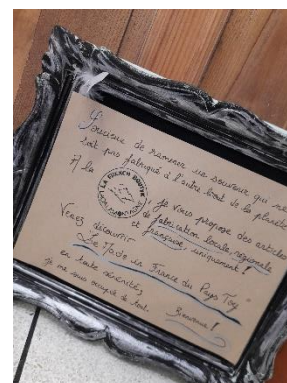 Soucieux de ramener un souvenir qui ne
soit pas fabriqué à l'autre bout de la planète
A la
LA FRENCH
je vous propose des articles
de fabrication locale, régionale
et française uniquement !
Venez découvrir
"Le Made in France du Pays Toy"
en toute sérénité,
je me suis occupé de tout.
Bienvenue !